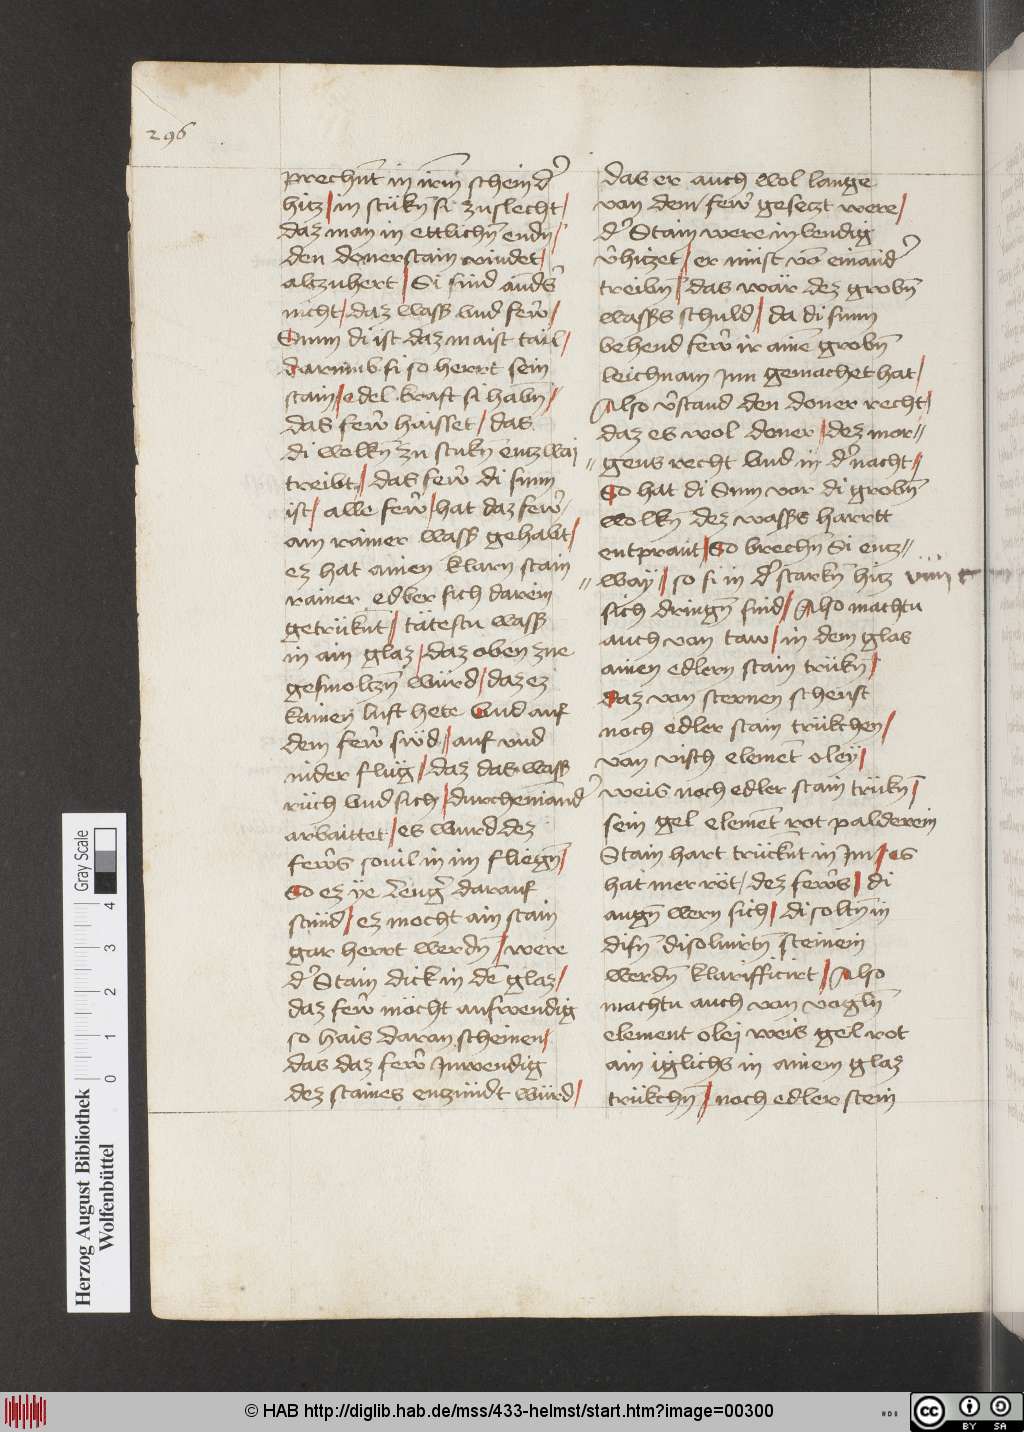 296
prechñt in irm̃ schein d̾
hitz / in stükñ si zuslecht /
daz man in ettlichñ endñ /
den donerstain vindet /
altzuhert / Si sind and̾s
nicht / daz wass̾ vnd few̾ /
Sunn di ist daz maist tail /
darumb si so herrt sein
stain / edel kraft si habñ /
das few̾ haisset / das
di wolkñ zu stukñ entzwai
treibt / das few̾ di sunn
ist / alle few̾ / hat daz few̾
ain rainer wass̾ gehabt /
ez hat ainen klarn stain
rainer edler sich darein
getrükñt / tätestu wass̾
in ain glaz / daz oben zue
gesmoltzñ würd / daz ez
kainen luft hete vnd auf
dem few̾ süd / auf vnd
nider flüg / daz das wass̾
rüch vnd sich / durcheinand̾
arbaittet / es wurd dez
few̾s souil in im fliegñ /
So ez ye leng̾ darauf
stünd / ez mocht ain stain
gar herrt werdñ / were
d̾ Stain dick in dē glaz /
daz few̾ möcht aufwendig
so hais daran scheinen /
das daz few̾ Inwendig
dez staines entzündt würd /
das er auch wol lange
von dem few̾ gesetzt were /
d̾ Stain were inbendig
v̾hitzet / er müst vō einand̾
treibñ / das wär dez grobñ
wass̾s schuld / da di sunn
behend few̾ ir ainē grobñ
leichnam Inn gemachet hat /
Also v̾stand den doner recht /
daz es wol doner / dez mor //
gens recht vnd in d̾ nacht //
So hat di Sunn vor di grobñ
wolkñ dez wass̾s harrtt
entprant / So brechñ Si entz //
way / so si in d̾ starkñ hitz
sich dringñ sind / Also machtu
auch von taw / in dem glas
ainen edlern stain trükñ /
daz von sternen schenst
noch edler stain trükchen /
von visch elemēt oley /
weis noch edler stain trükñ /
sein gel elemēt rot palderein
Stain hart trückñt in Im / es
hat mer röt / dez few̾s / di
augñ wern sich / di soltñ in
disñ disoluirtñ steinein
werdñ klarifficirt / Also
machtu auch von voglñ
element olej weis gel rot
ain iglichs in ainem glaz
trükchñ / noch edler stein
Herzog August Bibliothek
Wolfenbüttel
0 1 2 3 4
Gray Scale
© HAB http://diglib.hab.de/mss/433-helmst/start.htm?image=00300
HAB
cc BY SA